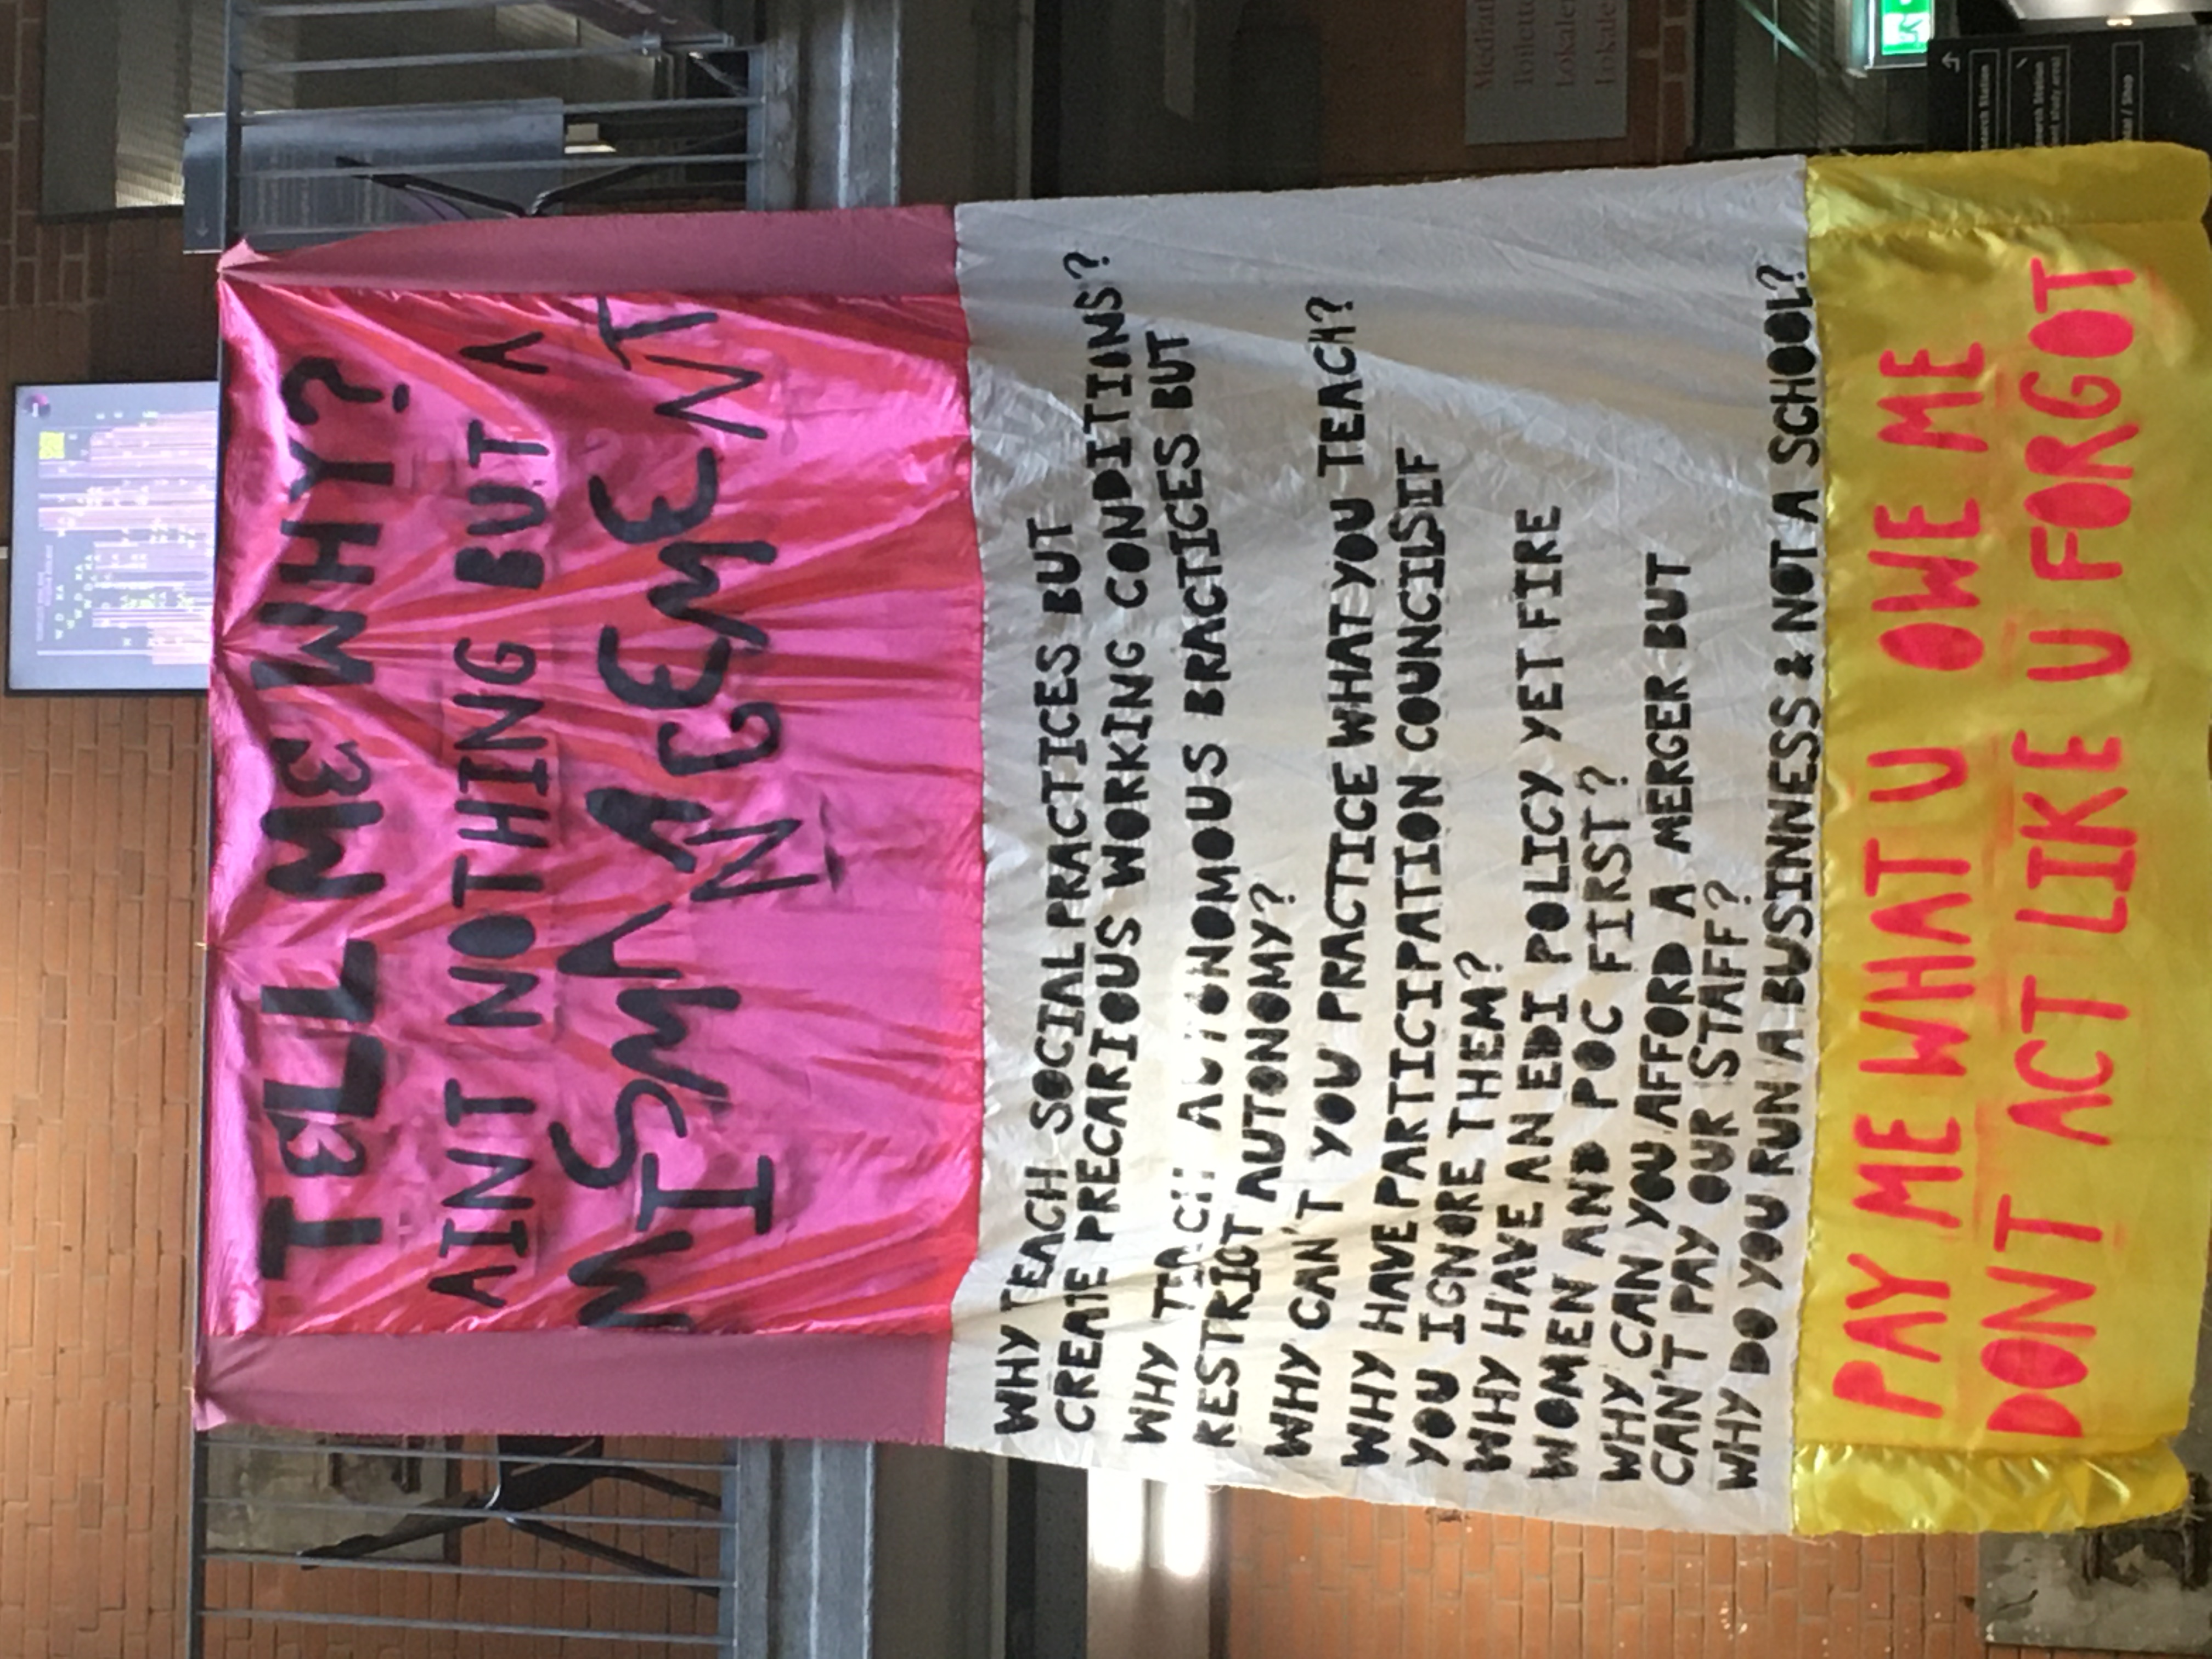 TELL ME WHY?
AINT NOTHING BUT A
MISMANAGEMENT
WHY TEACH SOCIAL PRACTICES BUT
CREATE PRECARIOUS WORKING CONDITIINS?
WHY TEACH AUTONOMOUS BRACTICES BUT
RESTRICT AUTONOMY?
WHY CAN'T YOU PRACTICE WHAT YOU TEACH?
WHY HAVE PARTICIPATION COUNCILSIF
YOU IGNORE THEM?
WHY HAVE AN EDI POLICY YET FIRE
WOMEN AND POC FIRST?
WHY CAN YOU AFFORD A MERGER BUT
CAN'T PAY OUR STAFF?
WHY DO YOU RUN A BUSINNESS & NOT A SCHOOL?
PAY ME WHAT U OWE ME
DONT ACT LIKE U FORGOT